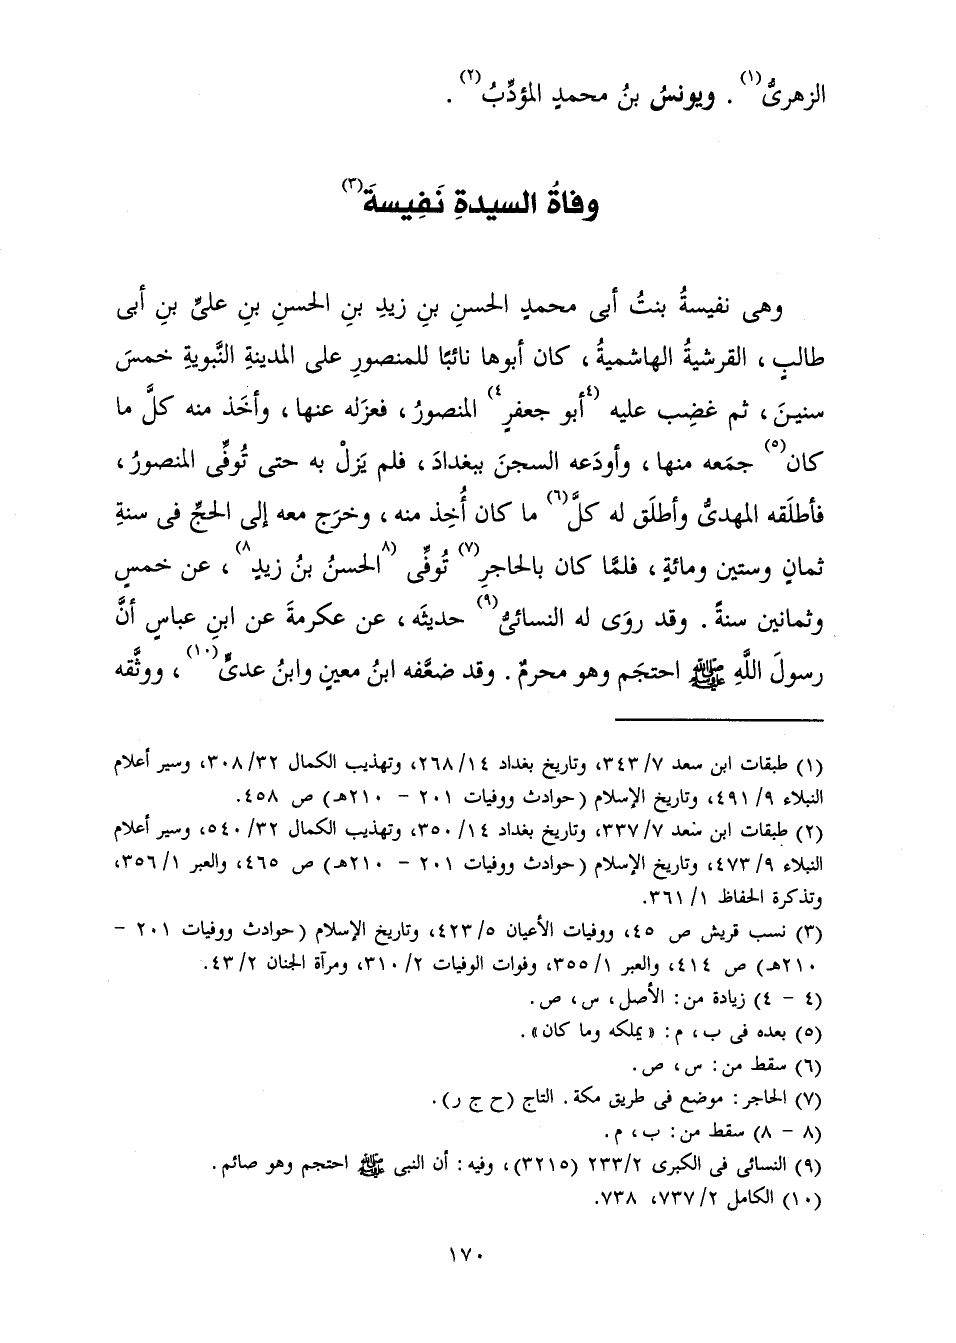 الزهرىُّ(١) . ويونسُ بنُ محمدٍ المؤدِّبُ(٢) .
وفاةُ السيدةِ نَفِيسةَ(٣)
وهى نفيسةُ بنتُ أبى محمدٍ الحسنِ بنِ زيدِ بنِ الحسنِ بنِ علىِّ بنِ أبى
طالبٍ ، القرشيةُ الهاشميةُ ، كان أبوها نائبًا للمنصورِ على المدينةِ النَّبويةِ خمسَ
سنينَ ، ثم غضِب عليه (٤أبو جعفرٍ٤) المنصورُ ، فعزَله عنها ، وأخَذ منه كلَّ ما
كان(٥) جمَعه منها ، وأودَعه السجنَ ببغدادَ ، فلم يَزلْ به حتى تُوفِّى المنصورُ ،
فأطلَقه المهدىُّ وأطلَق له كلَّ(٦) ما كان أُخِذ منه ، وخرَج معه إلى الحجِّ فى سنةِ
ثمانٍ وستين ومائةٍ ، فلمَّا كان بالحاجرِ(٧) تُوفِّى (٨الحسنُ بنُ زيدٍ٨) ، عن خمسٍ
وثمانين سنةً . وقد روَى له النسائىُّ(٩) حديثَه ، عن عكرمةَ عن ابنِ عباسٍ أنَّ
رسولَ اللَّهِ ﷺ احتجَم وهو محرمٌ . وقد ضعَّفه ابنُ معينٍ وابنُ عدىٍّ(١٠) ، ووثَّقه
(١) طبقات ابن سعد ٧/ ٣٤٣، وتاريخ بغداد ١٤/ ٢٦٨، وتهذيب الكمال ٣٢/ ٣٠٨، وسير أعلام
النبلاء ٩/ ٤٩١، وتاريخ الإسلام (حوادث ووفيات ٢٠١ – ٢١٠هـ) ص ٤٥٨.
(٢) طبقات ابن سعد ٧/ ٣٣٧، وتاريخ بغداد ١٤/ ٣٥٠، وتهذيب الكمال ٣٢/ ٥٤٠، وسير أعلام
النبلاء ٩/ ٤٧٣، وتاريخ الإسلام (حوادث ووفيات ٢٠١ – ٢١٠هـ) ص ٤٦٥، والعبر ١/ ٣٥٦،
وتذكرة الحفاظ ١/ ٣٦١.
(٣) نسب قريش ص ٤٥، ووفيات الأعيان ٥/ ٤٢٣، وتاريخ الإسلام (حوادث ووفيات ٢٠١ –
٢١٠هـ) ص ٤١٤، والعبر ١/ ٣٥٥، وفوات الوفيات ٢/ ٣١٠، ومرآة الجنان ٢/ ٤٣.
(٤ – ٤) زيادة من : الأصل ، س ، ص .
(٥) بعده فى ب ، م : «يملكه وما كان» .
(٦) سقط من : س ، ص .
(٧) الحاجر : موضع فى طريق مكة . التاج (ح ج ر) .
(٨ – ٨) سقط من : ب ، م .
(٩) النسائى فى الكبرى ٢/ ٢٣٣ (٣٢١٥) ، وفيه : أن النبى ﷺ احتجم وهو صائم .
(١٠) الكامل ٢/ ٧٣٧، ٧٣٨.
١٧٠